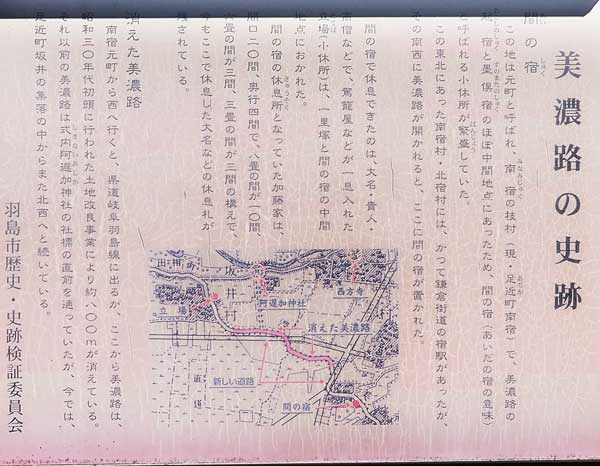 美濃路の史跡
間の宿
しゅく
この地は元町と呼ばれ、南宿の枝村（現・足近町南宿）で、美濃路の
みなみじゅく
あぢか
宿と墨俣宿のほぼ中間地点にあったため、間の宿（あいだの宿の意味）
すのまたのしゅく
と呼ばれる小休所が繁盛していた。
はんじょう
この東北にあった南宿村・北宿村には、かつて鎌倉街道の宿駅があったが、
その南西に美濃路が開かれると、ここに間の宿が置かれた。
間の宿で休息できたのは、大名・貴人・
南僧などで、駕籠屋などが一息入れた
立場（小休所）は、一里塚と間の宿の中間
地点におかれた。
間の宿の休息所となっていた加藤家は、
きゅうそく
間口二〇間、奥行四間で、八畳の間が一〇間、
八畳の間が三間、三畳の間が三間の構えで、
今もここで休息した大名などの休息札が
残されている。
消えた美濃路
南宿元町から西へ行くと、県道岐阜羽島線に出るが、ここから美濃路は、
昭和三〇年代初頭に行われた土地改良事業により約八〇〇mが消えている。
それ以前の美濃路は式内阿遅加神社の社標の直前を通っていたが、今では、
足近町坂井の集落の中からまた北西へと続いている。
羽島市歴史・史跡検証委員会
坂井村
西方寺
阿遅加神社
立場
消えた美濃路
新しい道路
直道
間の宿